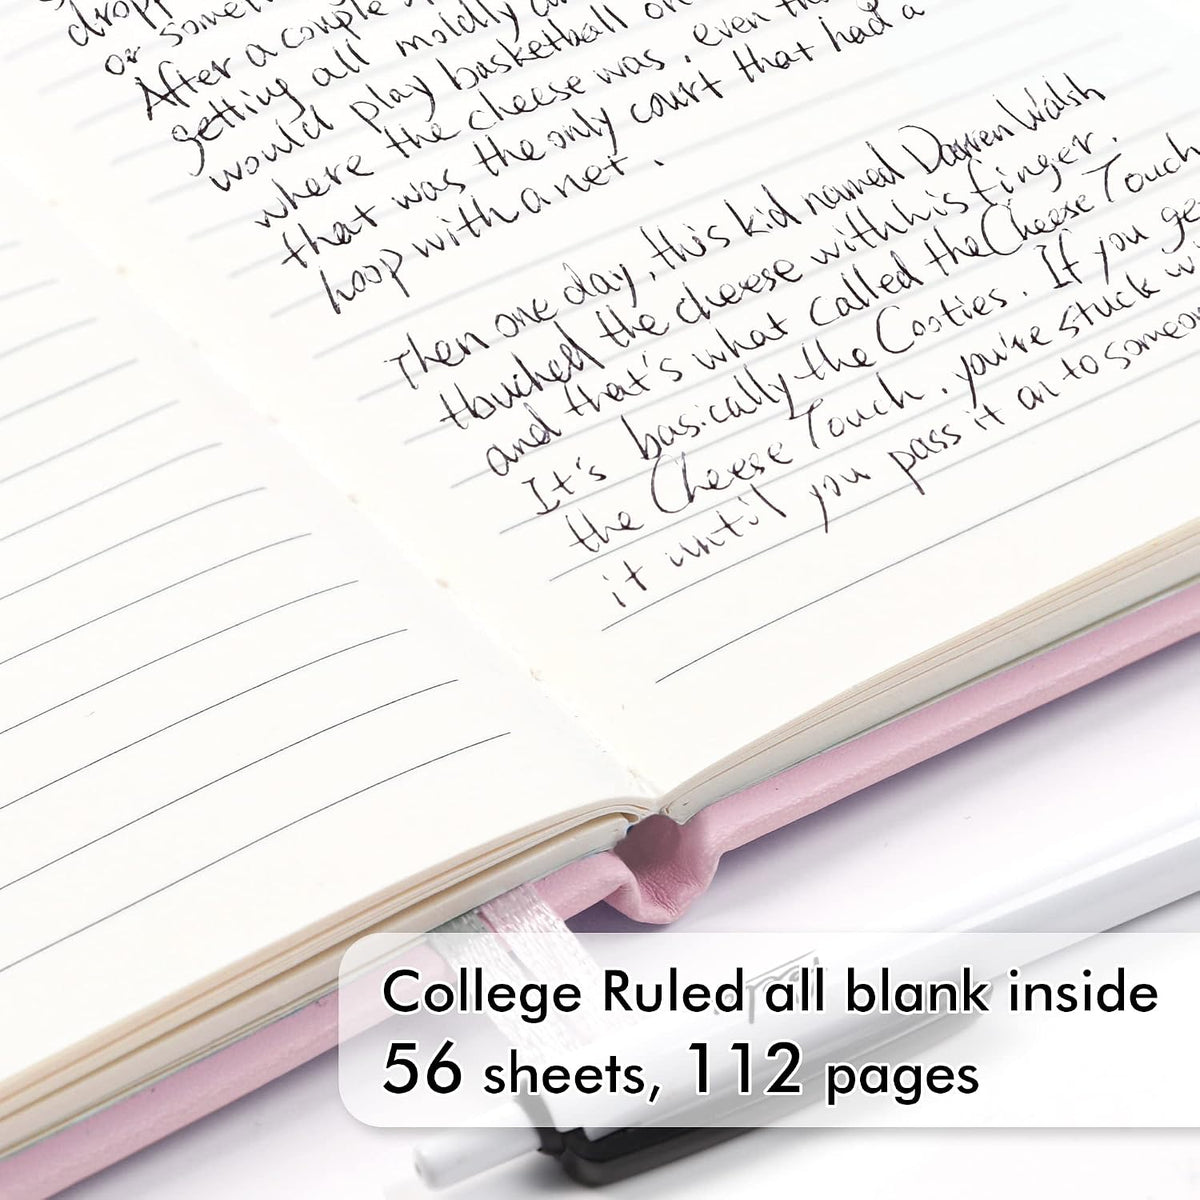 dropp
or someti
After a couple
getting all moldly an
would play basketball on
where the cheese was, even th
that was the only court that had a
hoop with a net.
Then one day, this kid named Darren Walsh
thouched the cheese with his finger.
and that's what called the Cheese Touch
It's basically the Cooties. If you ge
the Cheese Touch, you're stuck wi
it until you pass it on to someon
College Ruled all blank inside
56 sheets, 112 pages